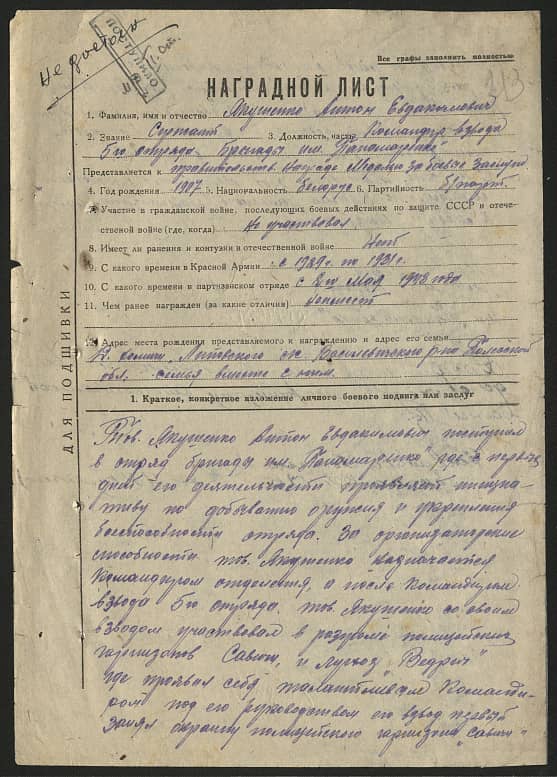 Не достоин
ПОСТУПИЛО
Все графы заполнить полностью
НАГРАДНОЙ ЛИСТ
1. Фамилия, имя и отчество Якушенко Антон Евдакимович
2. Звание Сержант 3. Должность, часть Командир взвода
5го отряда Бригады им. Панамаренко
Представляется к правительств. награде Медаль За боевые Заслуги
4. Год рождения 1907 5. Национальность Беларус 6. Партийность б/парт.
7. Участие в гражданской войне, последующих боевых действиях по защите СССР и отече-
ственной войне (где, когда) Не участвовал
8. Имеет ли ранения и контузии в отечественной войне Нет
9. С какого времени в Красной Армии с 1929г по 1931г.
10. С какого времени в партизанском отряде с 2го Мая 1943 года
11. Чем ранее награжден (за какие отличия)
12. Адрес места рождения представляемого к награждению и адрес его семьи
Василевичского р-на Полесской
обл. семья вместе с ним.
ДЛЯ ПОДШИВКИ
1. Краткое, конкретное изложение личного боевого подвига или заслуг
Тов. Якушенко Антон Евдакимович поступил
в отряд бригады им. "Понамаренко" где с первых
дней его деятельности проявляет инициа-
тиву по добыванию оружия и укрепления
боеспособности отряда. За организаторские
способности тов. Якушенко назначается
Командиром отделения, а после Командиром
взвода 5го отряда. тов. Якушенко со своим
взводом участвовал в разгроме полицейских
гарнизонов Савичи, и "Ведрич"
где проявил себя талантливым Команди-
ром под его руководством его взвод первый
занял окраину полицейского гарнизона "Савичи"